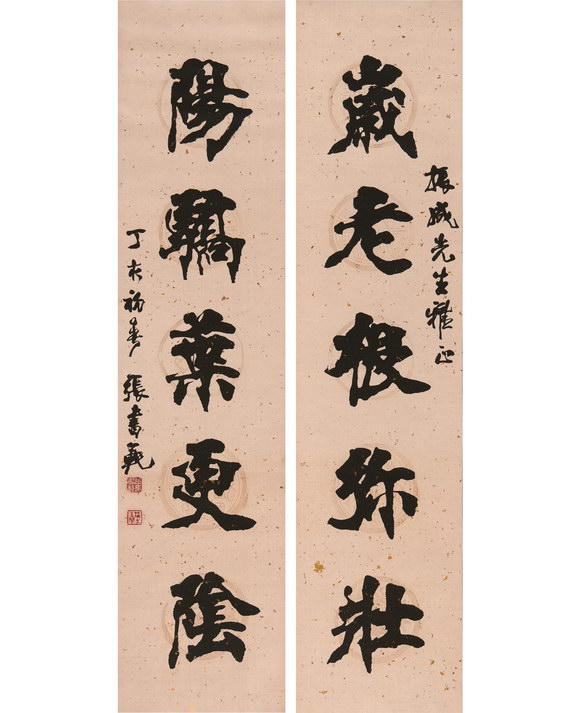 嵗老根弥壯
振威先生雅正
陽驕葉更陰
丁亥初春 張書範